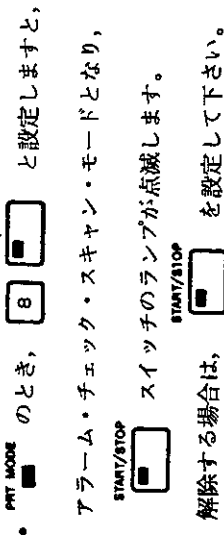 • PRT MODE のとき, 8 と設定しますと,
アラーム・チェック・スキャン・モードとなり,
START/STOP スイッチのランプが点滅します。
解除する場合は, START/STOP を設定して下さい。